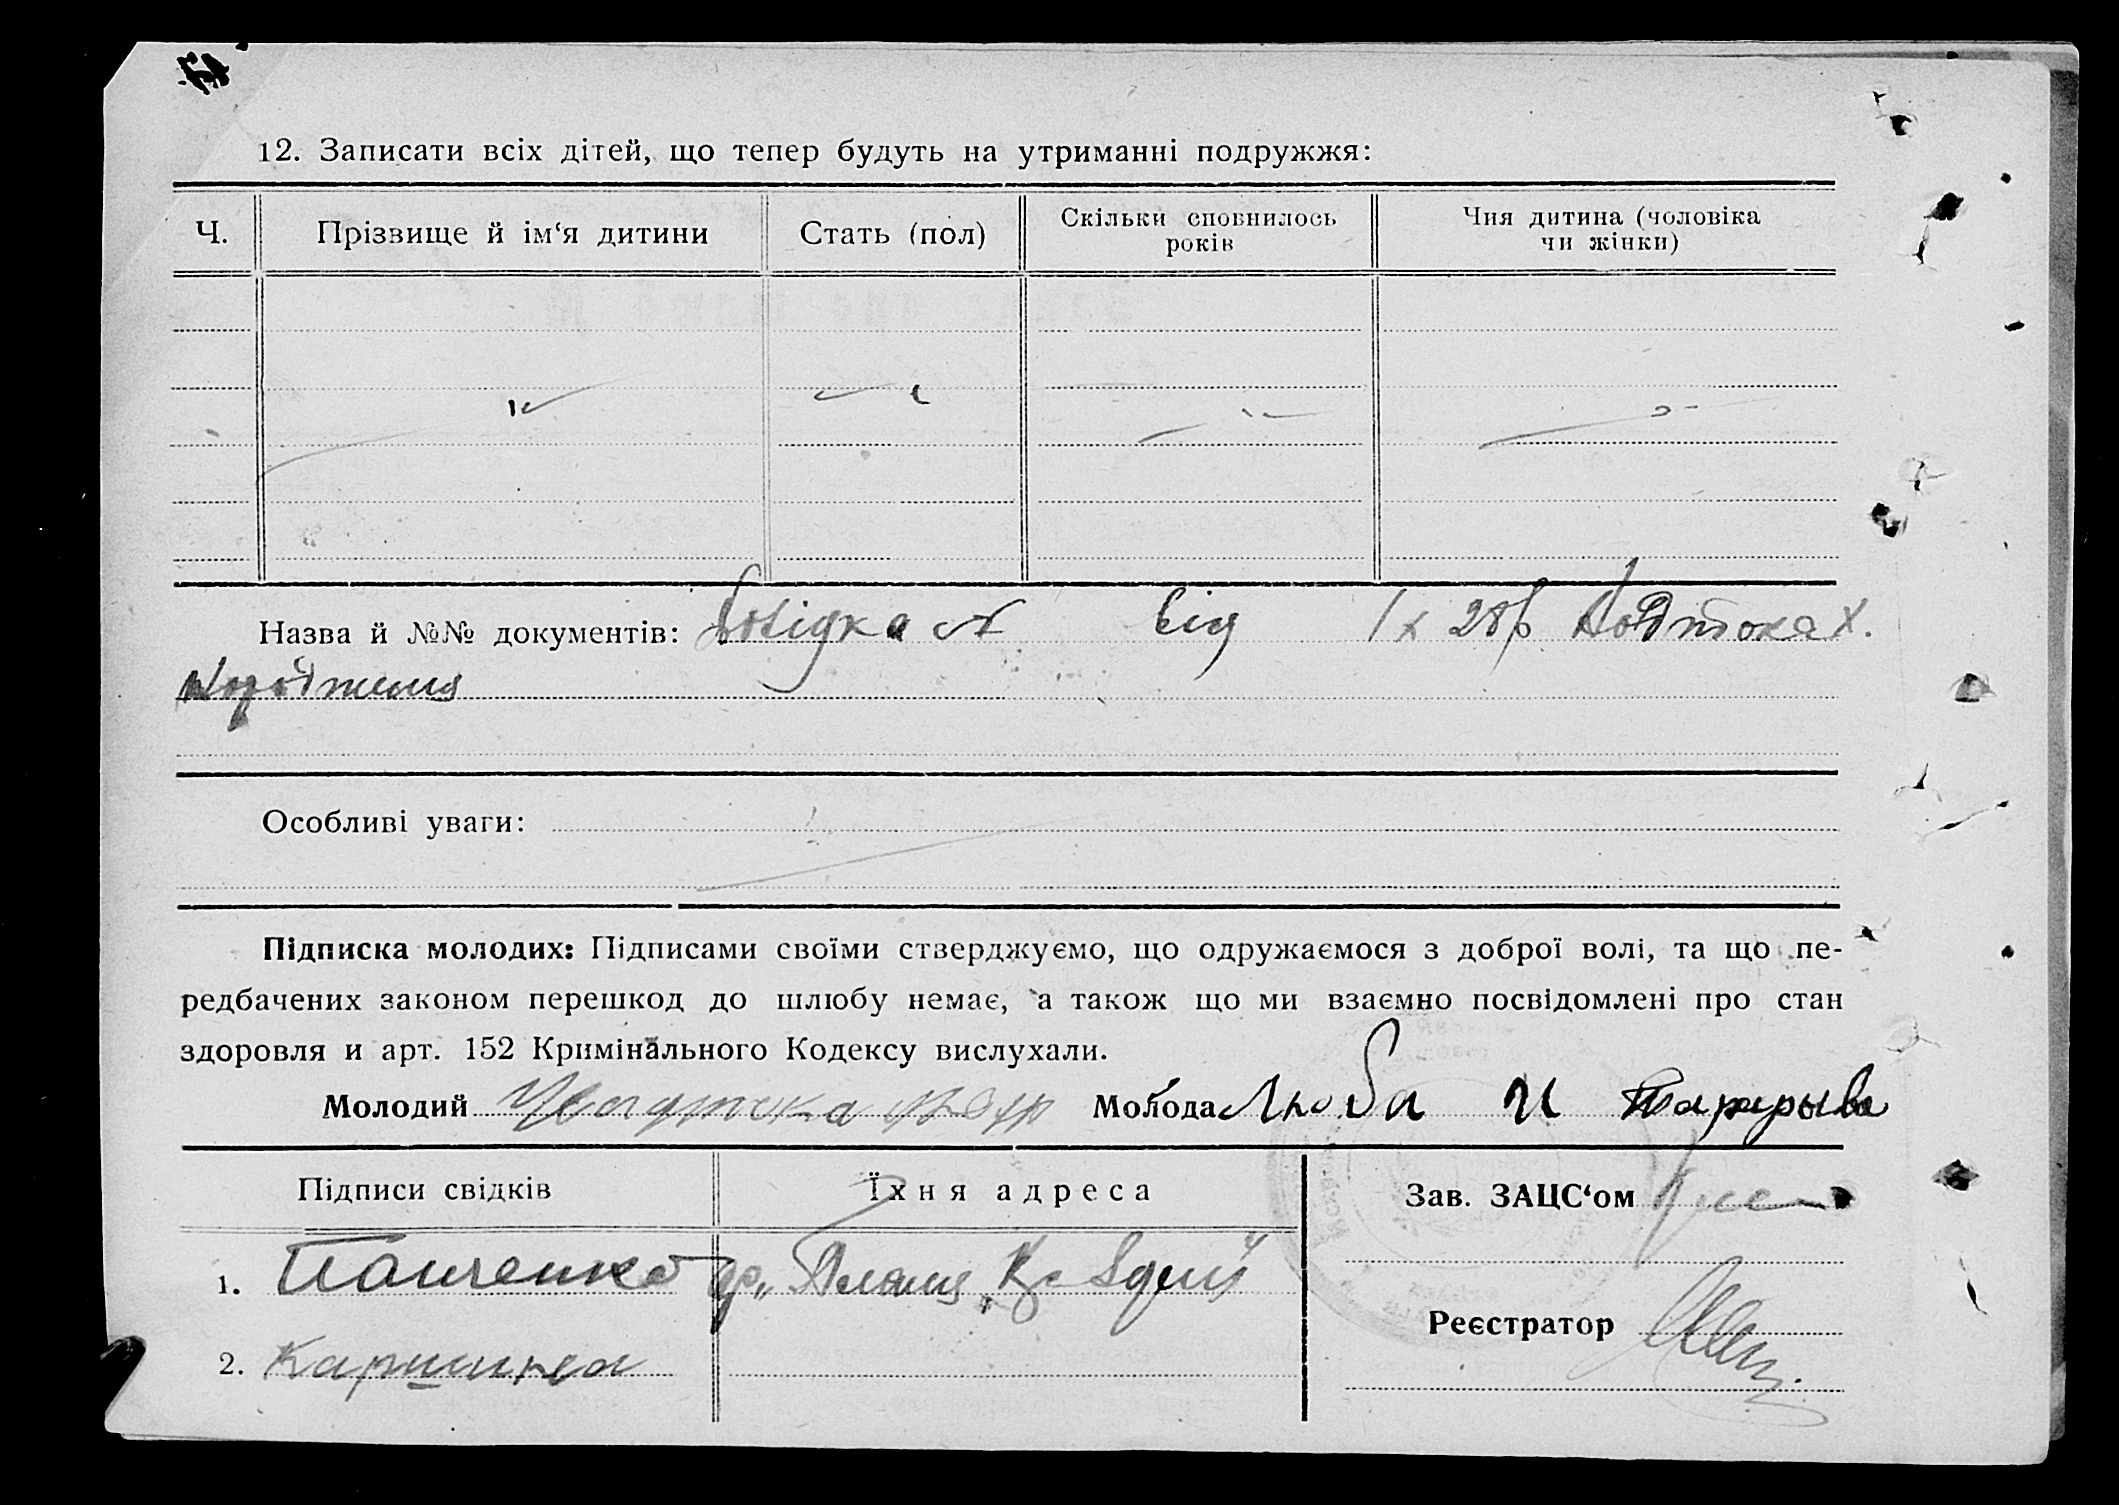 12. Записати всіх дітей, що тепер будуть на утриманні подружжя:
Ч. Прізвище й ім‘я дитини Стать (пол) Скільки сповнилось років Чия дитина (чоловіка чи жінки)
Назва й №№ документів: Довідка № від 1 X 28р
Особливі уваги:
Підписка молодих: Підписами своїми стверджуємо, що одружаємося з доброї волі, та що пе-
редбачених законом перешкод до шлюбу немає, а також що ми взаємно посвідомлені про стан
здоровля и арт. 152 Кримінального Кодексу вислухали.
Молодий Молода Люба И
Підписи свідків Їхня адреса Зав. ЗАЦС‘ом
1. Пащенко
Реєстратор
2.